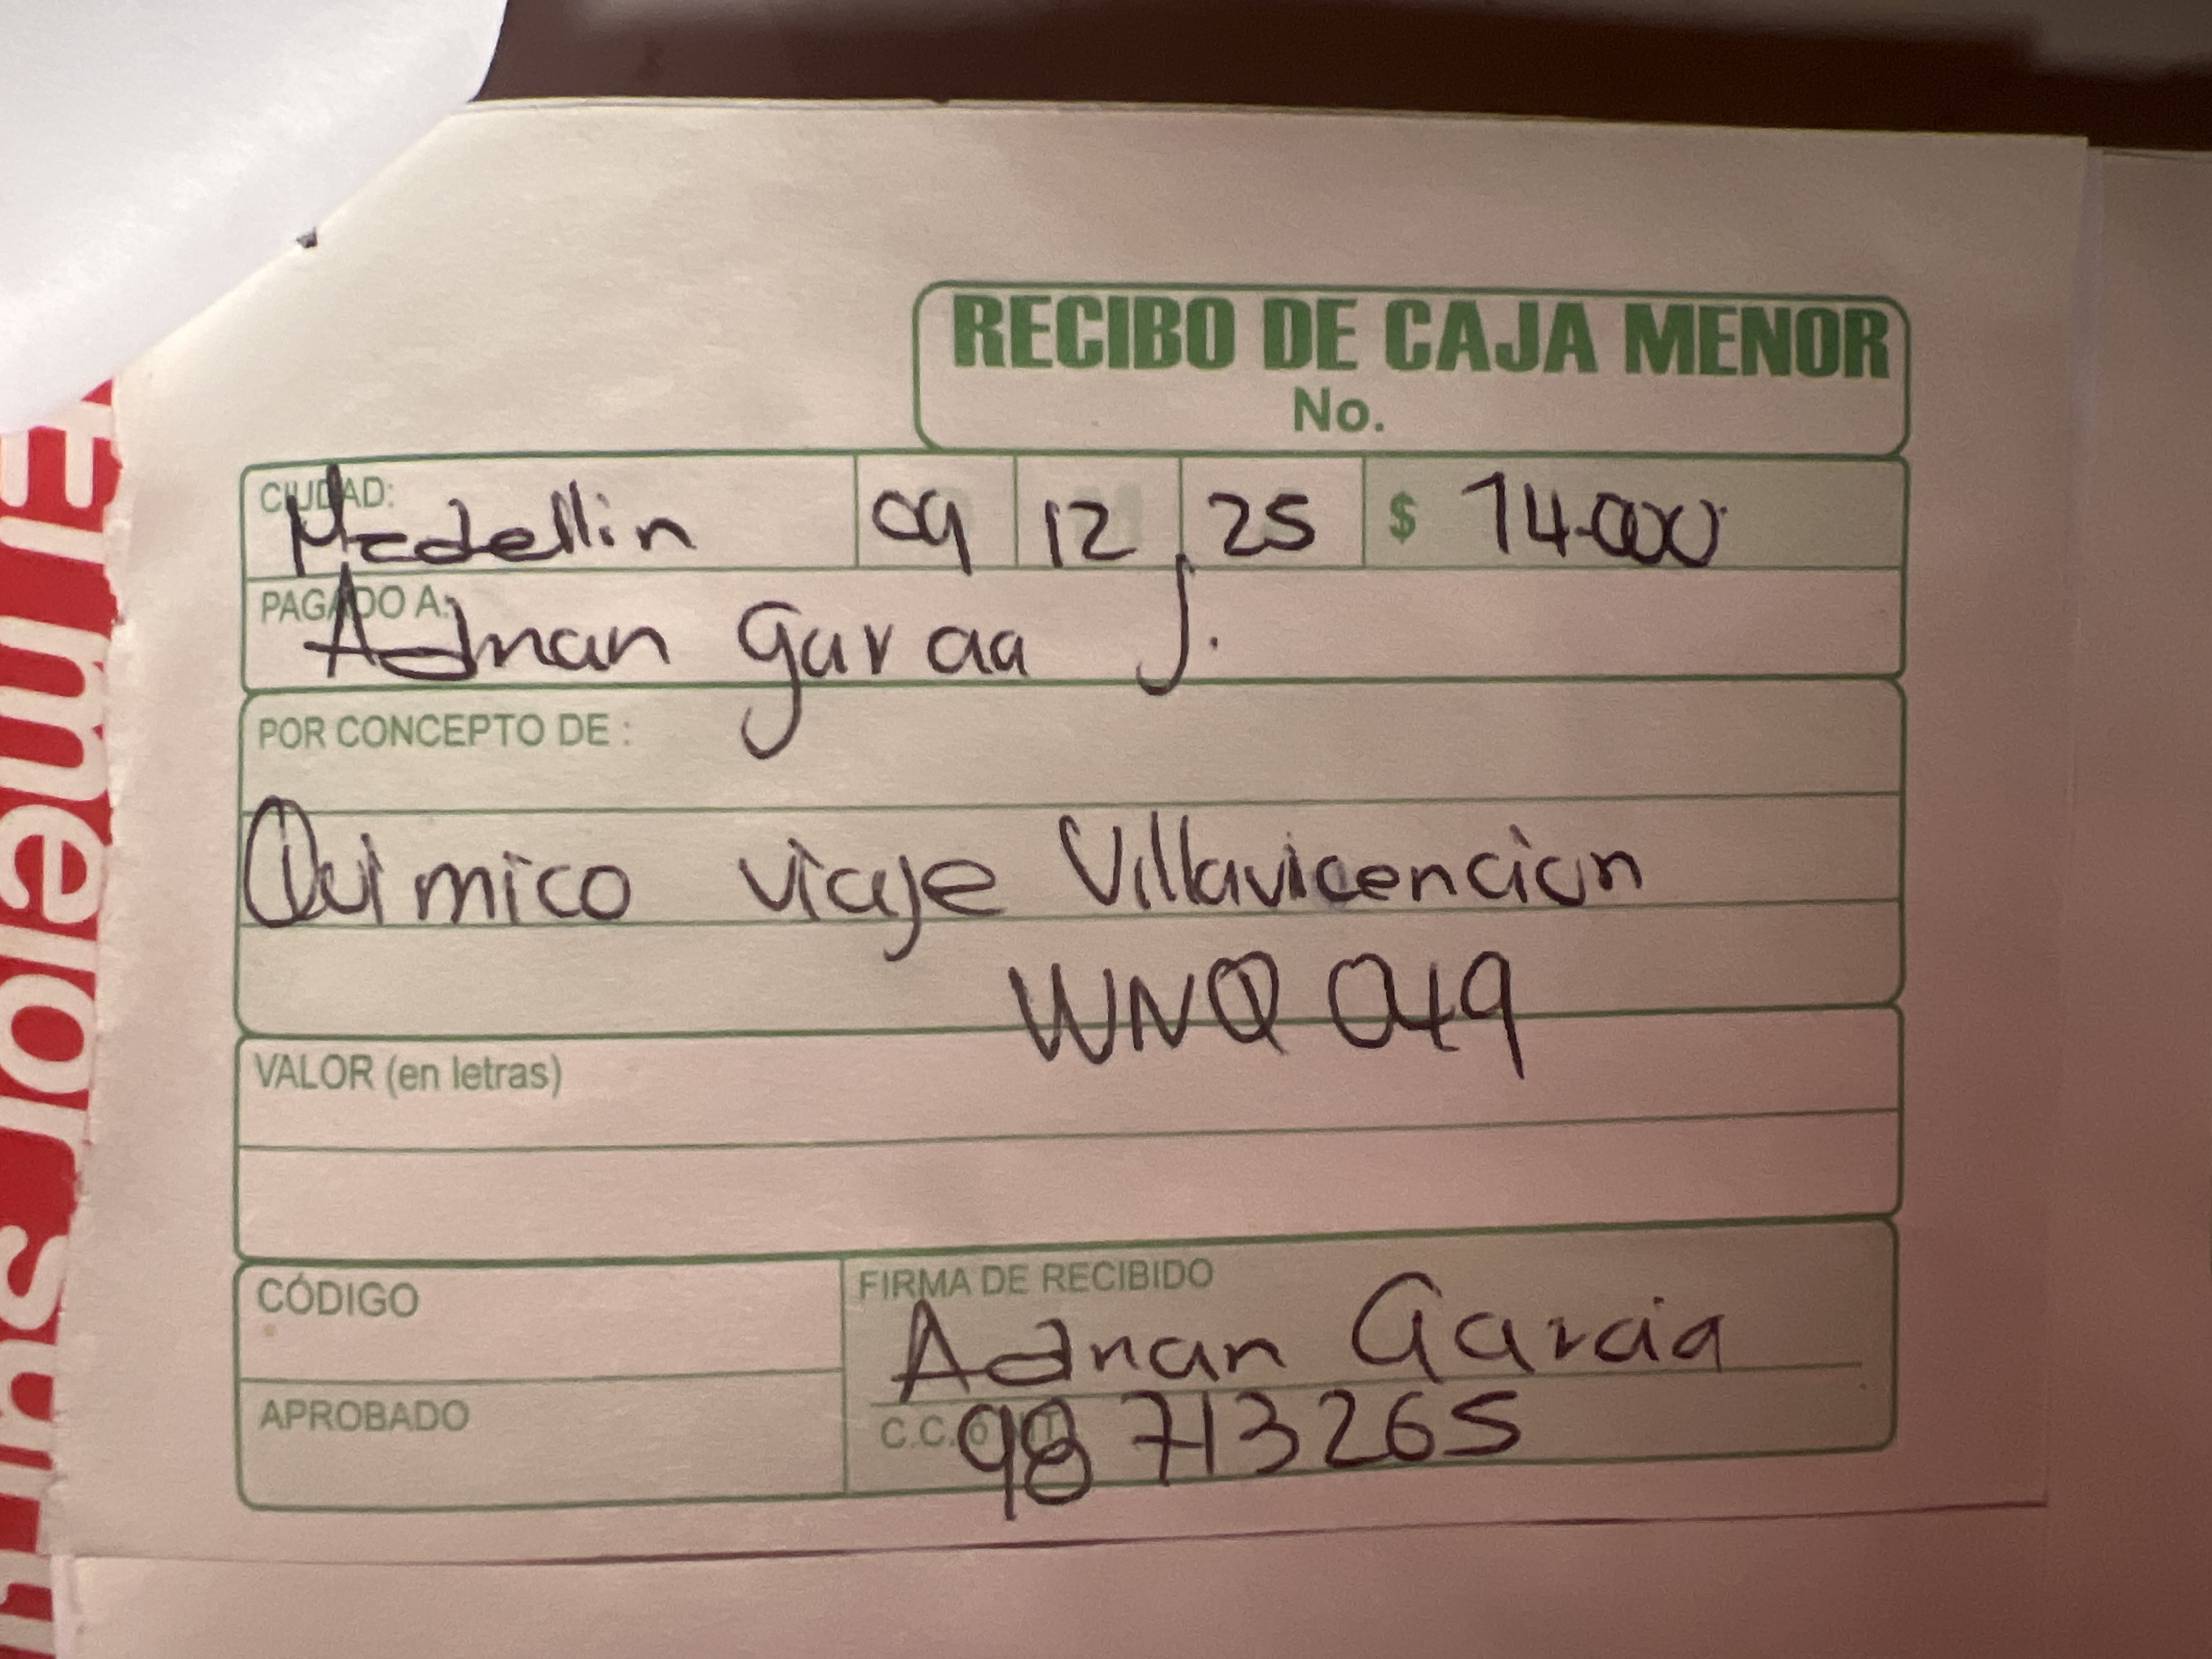 RECIBO DE CAJA MENOR
No.
CIUDAD: Medellin 09 12 25 $ 14.000
PAGADO A: Adrian Garcia J.
POR CONCEPTO DE :
Quimico viaje Villavicencion
WNQ 049
VALOR (en letras)
CÓDIGO
FIRMA DE RECIBIDO
Adrian Garcia
APROBADO
C.C. ó NIT. 98 713265
El mejor